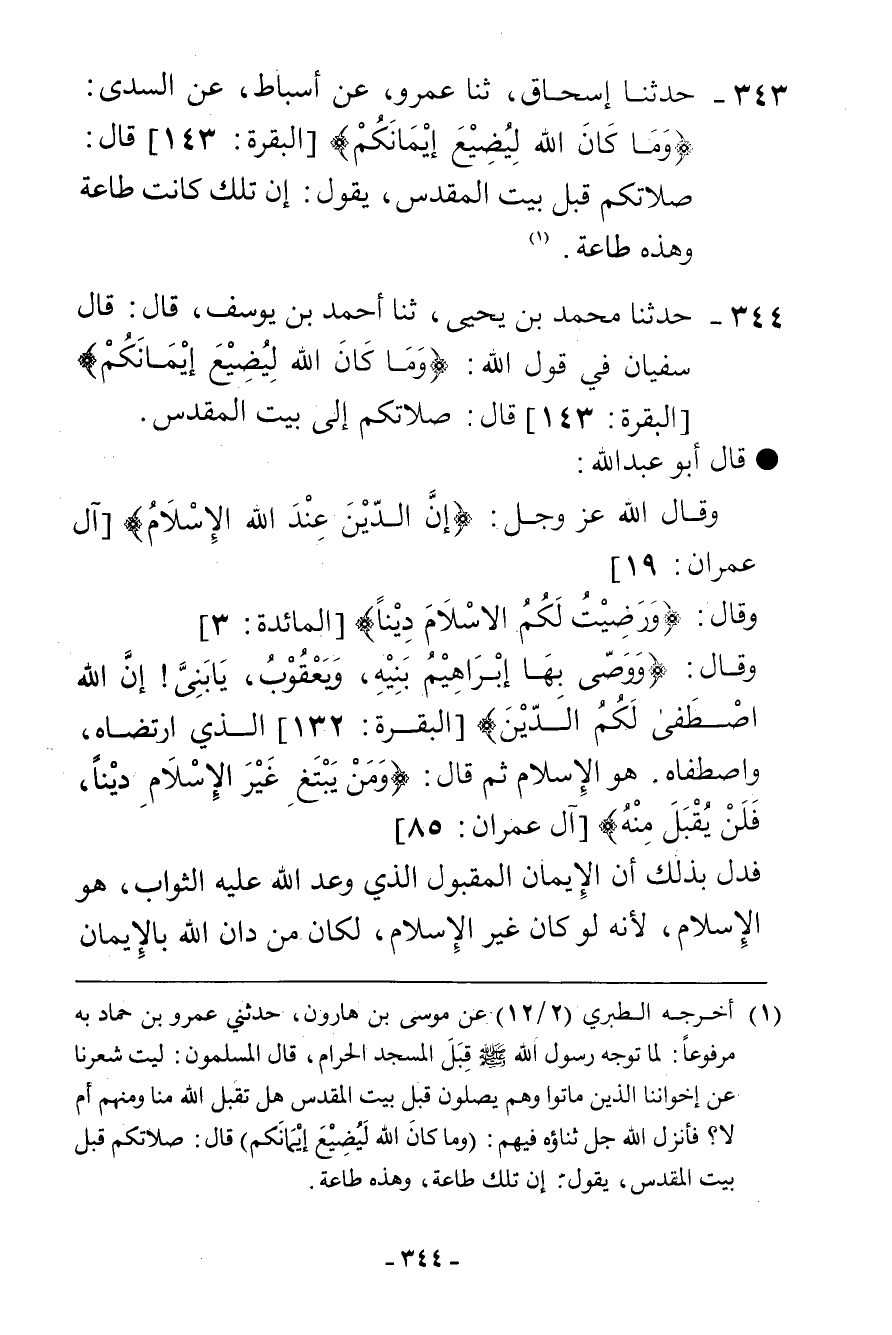 ٣٤٣ ـ حدثنـا إسحـاق، ثنا عمرو، عن أسباط، عن السدى:
﴿وَمَـا كَانَ الله لِيُضِيْعَ إيْمَانَكُمْ﴾ [البقرة: ١٤٣] قال:
صلاتكم قبل بيت المقدس، يقول: إن تلك كانت طاعة
وهذه طاعة. (١)
٣٤٤ ـ حدثنا محمد بن يحيى، ثنا أحمد بن يوسف، قال: قال
سفيان في قول الله: ﴿وَمَـا كَانَ الله لِيُضِيْعَ إيْمَـانَكُمْ﴾
[البقرة: ١٤٣] قال: صلاتكم إلى بيت المقدس.
● قال أبو عبدالله:
وقـال الله عز وجـل: ﴿إنَّ الـدّيْنَ عِنْدَ الله الإِسْلَامُ﴾ [آل
عمران: ١٩]
وقال: ﴿وَرَضِيْتُ لَكُمُ الاسْلَامَ دِيْناً﴾ [المائدة: ٣]
وقـال: ﴿وَوَصّى بِهَـا إبْـرَاهِيْمُ بَنِيْهِ، وَيَعْقُوْبُ، يَابَنِيَّ! إنَّ الله
اصْـطَفىٰ لَكُمُ الـدّيْنَ﴾ [البقـرة: ١٣٢] الـذي ارتضـاه،
واصطفاه. هو الإِسلام ثم قال: ﴿وَمَنْ يَبْتَغِ غَيْرَ الإِسْلَامِ دِيْناً،
فَلَنْ يُقْبَلَ مِنْهُ﴾ [آل عمران: ٨٥]
فدل بذلك أن الإِيمان المقبول الذي وعد الله عليه الثواب، هو
الإِسلام، لأنه لو كان غير الإِسلام، لكان من دان الله بالإِيمان
(١) أخـرجـه الـطبري (١٢/٢) عن موسى بن هارون، حدثني عمرو بن حماد به
مرفوعاً: لما توجه رسول الله ﷺ قِبَلَ المسجد الحرام، قال المسلمون: ليت شعرنا
عن إخواننا الذين ماتوا وهم يصلون قبل بيت المقدس هل تقبل الله منا ومنهم أم
لا؟ فأنزل الله جل ثناؤه فيهم: (وما كانَ الله لَيُضِيْعَ إيْمَانَكم) قال: صلاتكم قبل
بيت المقدس، يقول: إن تلك طاعة، وهذه طاعة.
ـ ٣٤٤ ـ